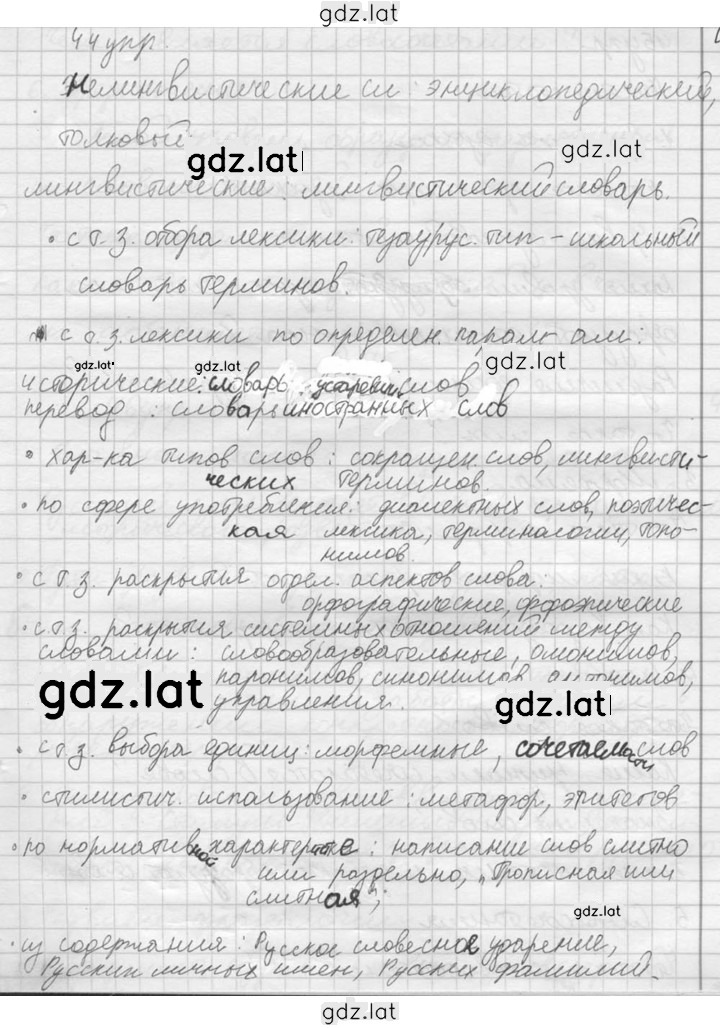 gdz.lat
44 упр.
Нелингвистические сл: энциклопедический,
толковый
gdz.lat
gdz.lat
лингвистические: лингвистический словарь.
• с т.з. отбора лексики: тезаурус. тип - школьный
словарь терминов.
с т.з. лексики по определен. парам-ам:
gdz.lat
gdz.lat
gdz.lat
исторические: словарь устаревших слов
перевод: словарь иностранных слов
• хар-ка типов слов: сокращен. слов, лингвисти-
ческих терминов.
• по сфере употребления: диалектных слов, поэтичес-
кая лексика, терминологии, топо-
нимов.
• с т.з. раскрытия отдел. аспектов слова:
орфографические, орфоэпические
• с т.з. раскрытия системных отношений между
словами: словообразовательные, омонимов,
паронимов, синонимов, антонимов,
управления.
gdz.lat
gdz.lat
• с т.з. выбора единиц: морфемные, сочетаемости слов
• стилистич. использование: метафор, эпитетов
• по нормативной характерис-ке: написание слов слитно
или раздельно, „Прописная или
слитная";
gdz.lat
• из содержания: Русское словесное ударение,
Русских личных имён, Русских фамилий.
gdz.lat